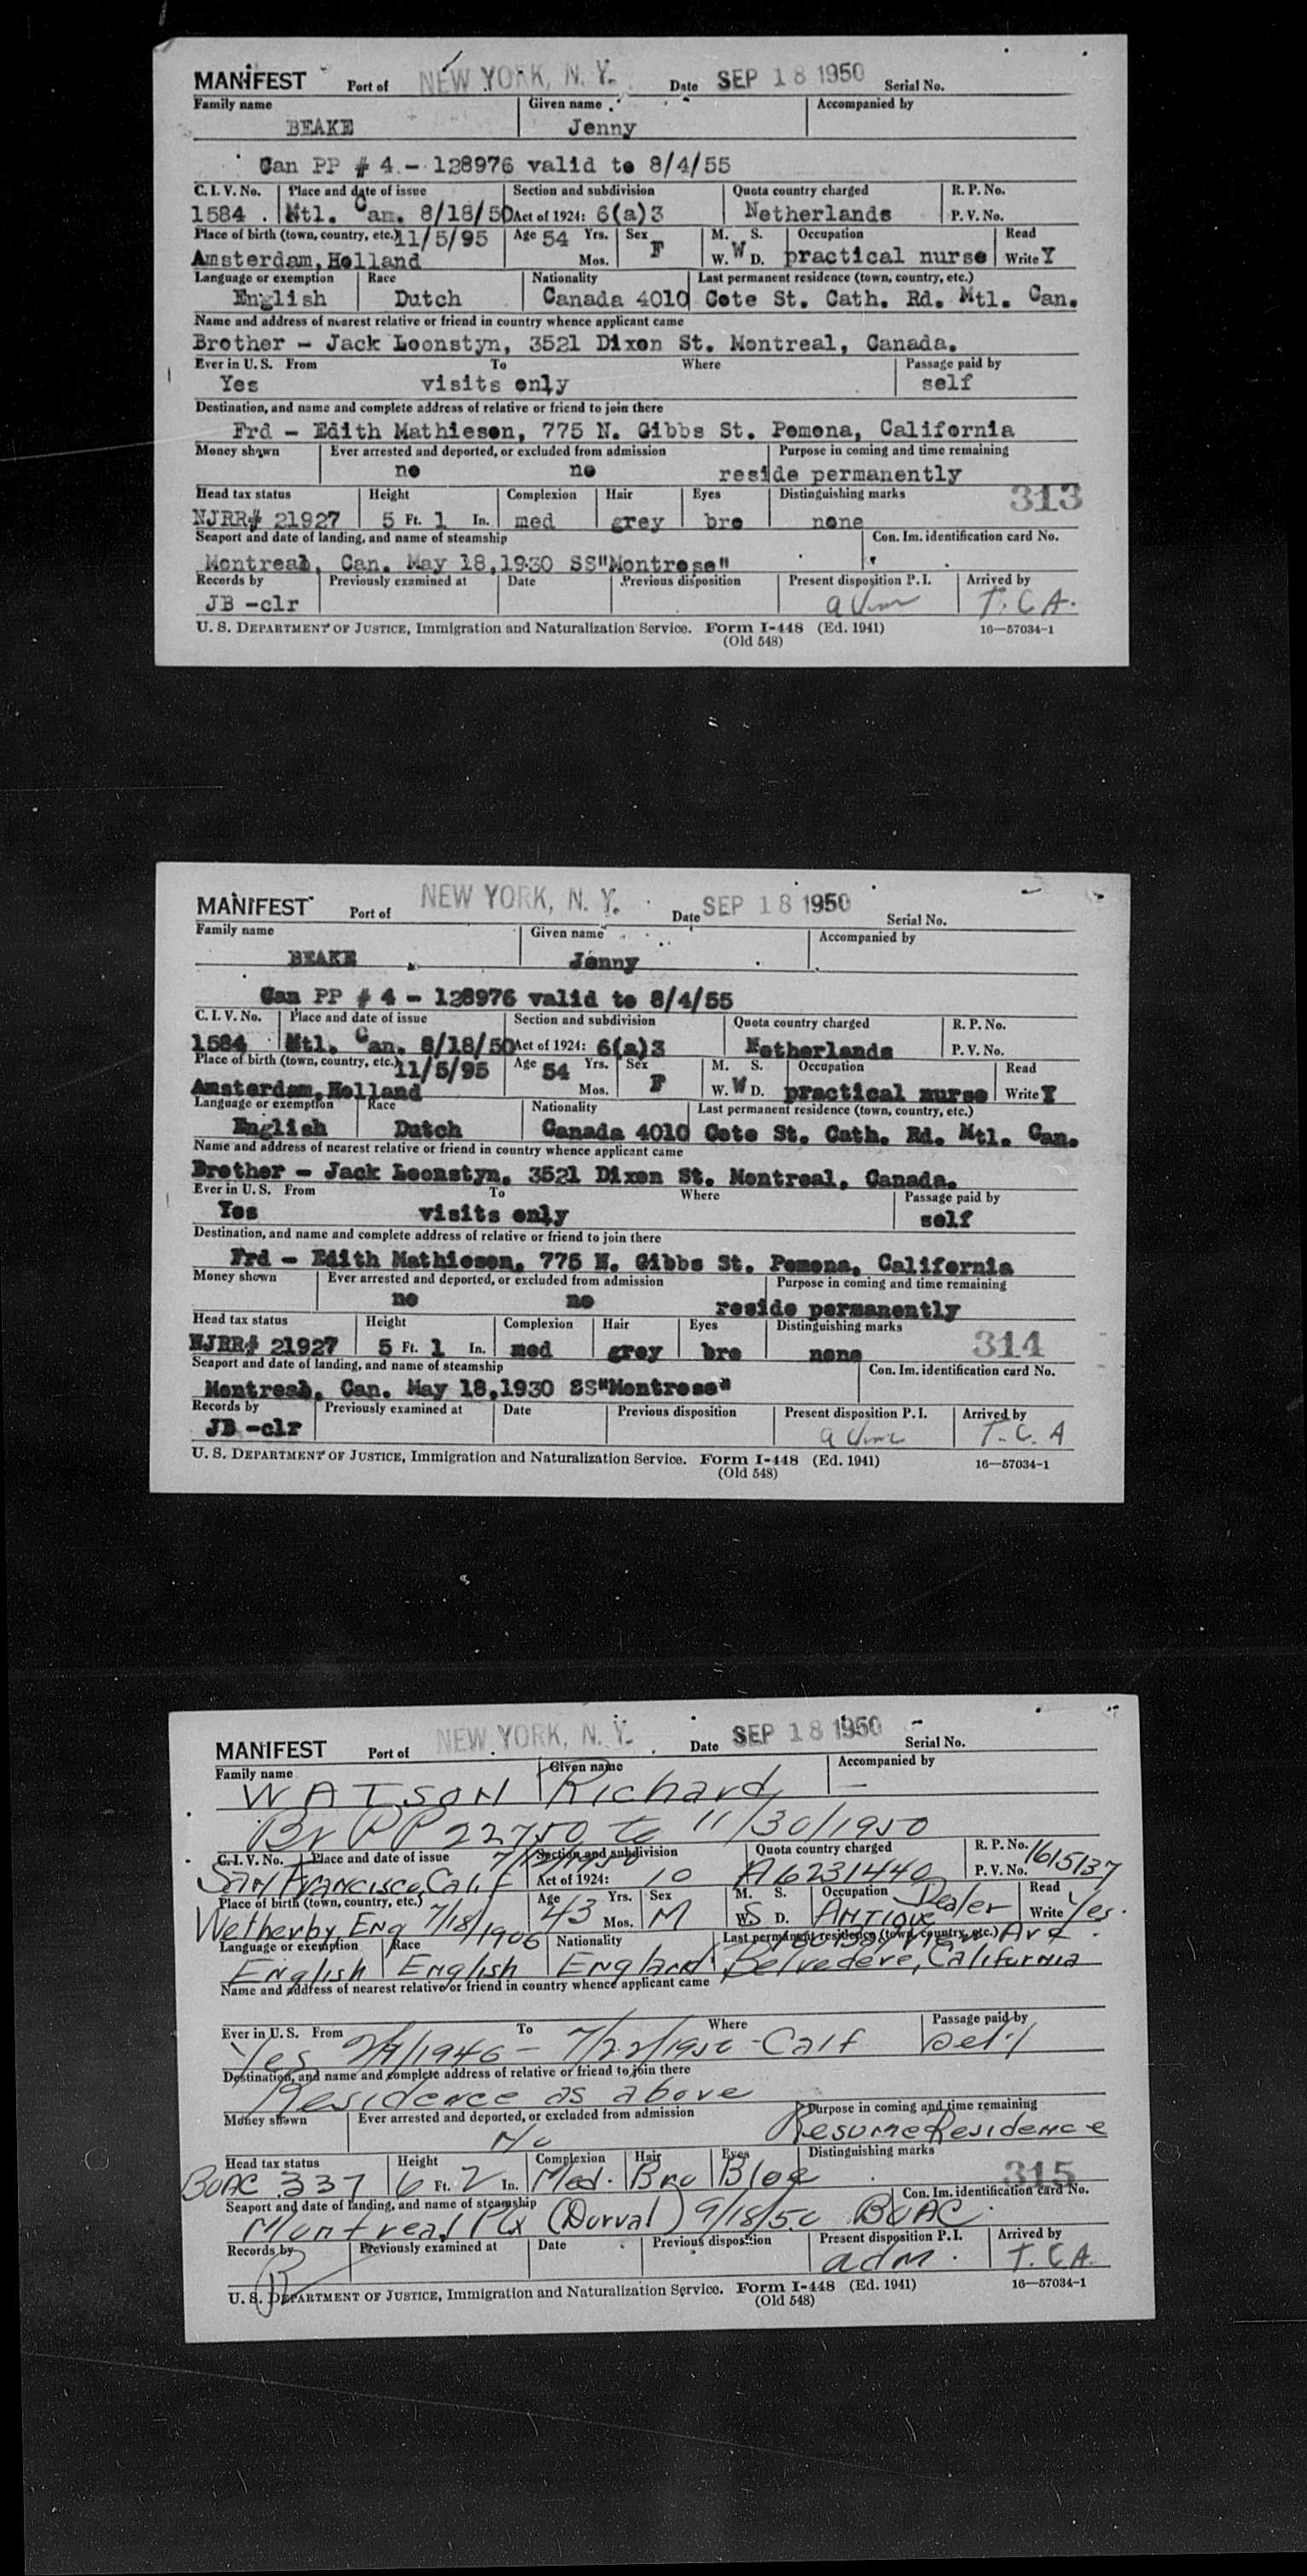 MANIFEST Port of NEW YORK, N. Y. Date SEP 18 1950 Serial No.
Family name Given name Accompanied by
BEAKE Jenny
Can PP # 4 - 128976 valid to 8/4/55
C. I. V. No. Place and date of issue Section and subdivision Quota country charged R. P. No.
1584 Mtl. Can. 8/18/50 Act of 1924: 6(a)3 Netherlands P. V. No.
Place of birth (town, country, etc.) 11/5/95 Age 54 Yrs. Sex F M. S. Occupation Read
Amsterdam, Holland Mos. W. W D. practical nurse Write Y
Language or exemption Race Nationality Last permanent residence (town, country, etc.)
English Dutch Canada 4010 Cote St. Cath. Rd. Mtl. Can.
Name and address of nearest relative or friend in country whence applicant came
Brother - Jack Loonstyn, 3521 Dixon St. Montreal, Canada.
Ever in U. S. From To Where Passage paid by
Yes visits only self
Destination, and name and complete address of relative or friend to join there
Frd - Edith Mathieson, 775 N. Gibbs St. Pomona, California
Money shown Ever arrested and deported, or excluded from admission Purpose in coming and time remaining
no no reside permanently
Head tax status Height Complexion Hair Eyes Distinguishing marks 313
NJRR# 21927 5 Ft. 1 In. med grey bro none
Seaport and date of landing, and name of steamship Con. Im. identification card No.
Montreal, Can. May 18,1930 SS"Montrose"
Records by Previously examined at Date Previous disposition Present disposition P. I. Arrived by
JB -clr T. C. A.
U. S. DEPARTMENT OF JUSTICE, Immigration and Naturalization Service. Form I-448 (Ed. 1941) 16—57034-1
(Old 548)
MANIFEST Port of NEW YORK, N. Y. Date SEP 18 1950 Serial No.
Family name Given name Accompanied by
BEAKE Jenny
Can PP # 4 - 128976 valid to 8/4/55
C. I. V. No. Place and date of issue Section and subdivision Quota country charged R. P. No.
1584 Mtl. Can. 8/18/50 Act of 1924: 6(a)3 Netherlands P. V. No.
Place of birth (town, country, etc.) 11/5/95 Age 54 Yrs. Sex F M. S. Occupation Read
Amsterdam, Holland Mos. W. W D. practical nurse Write Y
Language or exemption Race Nationality Last permanent residence (town, country, etc.)
English Dutch Canada 4010 Cote St. Cath. Rd. Mtl. Can.
Name and address of nearest relative or friend in country whence applicant came
Brother - Jack Loonstyn, 3521 Dixon St. Montreal, Canada.
Ever in U. S. From To Where Passage paid by
Yes visits only self
Destination, and name and complete address of relative or friend to join there
Frd - Edith Mathieson, 775 N. Gibbs St. Pomona, California
Money shown Ever arrested and deported, or excluded from admission Purpose in coming and time remaining
no no reside permanently
Head tax status Height Complexion Hair Eyes Distinguishing marks 314
NJRR# 21927 5 Ft. 1 In. med grey bro none
Seaport and date of landing, and name of steamship Con. Im. identification card No.
Montreal, Can. May 18,1930 SS"Montrose"
Records by Previously examined at Date Previous disposition Present disposition P. I. Arrived by
JB -clr T. C. A
U. S. DEPARTMENT OF JUSTICE, Immigration and Naturalization Service. Form I-448 (Ed. 1941) 16—57034-1
(Old 548)
MANIFEST Port of NEW YORK, N. Y. Date SEP 18 1950 Serial No.
Family name Given name Accompanied by
WATSON Richard —
Br PP 22750 to 11/30/1950
C. I. V. No. Place and date of issue Section and subdivision Quota country charged R. P. No. 1615137
San Francisco, Calif Act of 1924: 10 A6231440 P. V. No.
Place of birth (town, country, etc.) Age 43 Yrs. Sex M M. S. Occupation Dealer Read
Wetherby Eng 7/18/1906 Mos. W. S D. Antique Write Yes.
Language or exemption Race Nationality Last permanent residence (town, country, etc.) Ave
English English England Belvedere, California
Name and address of nearest relative or friend in country whence applicant came
Ever in U. S. From To Where Passage paid by
Yes 1946 - 7/22/1950 - Calf Self
Destination, and name and complete address of relative or friend to join there
Residence as above
Money shown Ever arrested and deported, or excluded from admission Purpose in coming and time remaining
No Resume Residence
Head tax status Height Complexion Hair Eyes Distinguishing marks 315
BOAC 337 6 Ft. 2 In. Med. Bro Bloe
Seaport and date of landing, and name of steamship Con. Im. identification card No.
Montreal PQ (Dorval) 9/18/50 BOAC
Records by Previously examined at Date Previous disposition Present disposition P. I. Arrived by
adm. T. C. A.
U. S. DEPARTMENT OF JUSTICE, Immigration and Naturalization Service. Form I-448 (Ed. 1941) 16—57034-1
(Old 548)